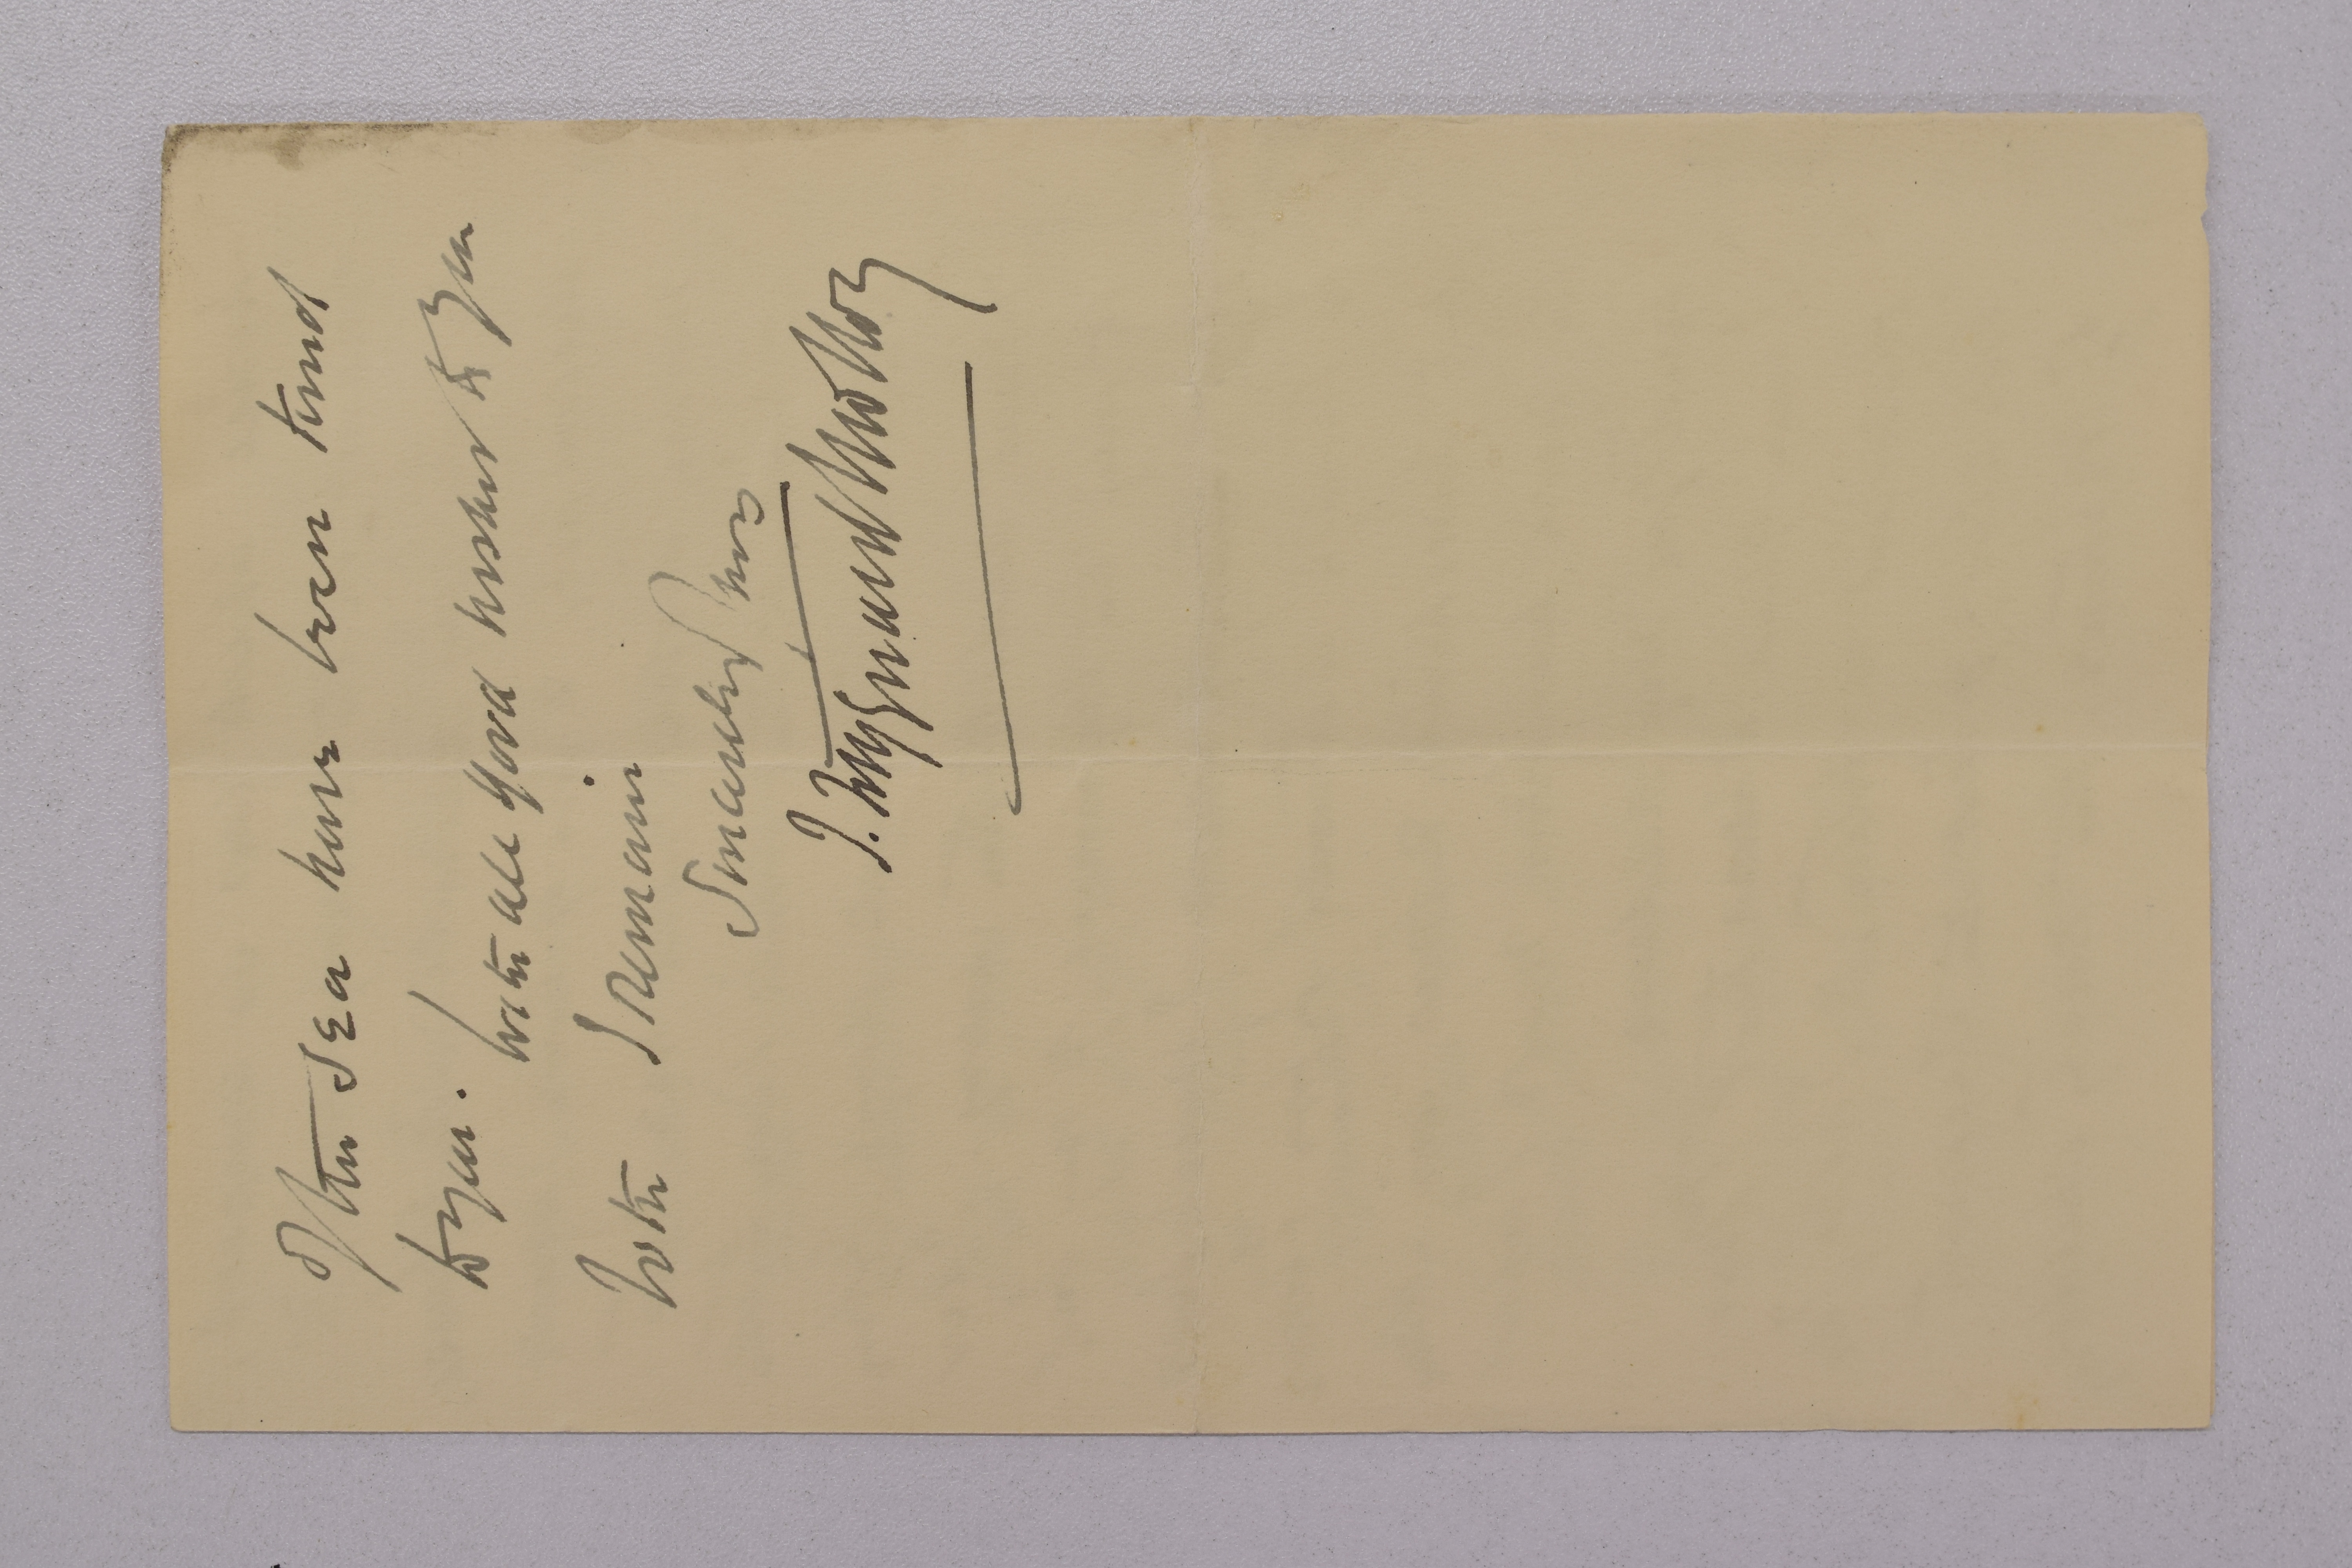 of the Sea have been kind
to you. With all good wishes to you
both I remain
Sincerely yours